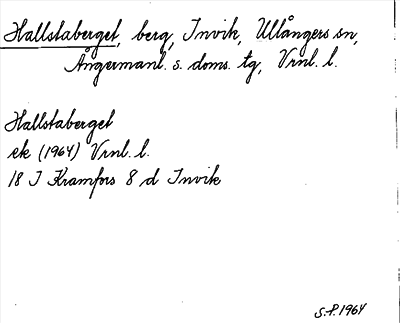 Hallstaberget, berg, Invik, Ullångers sn,
Ångermanl. s. doms. tg, Vrnl. l.
Hallstaberget
ek (1964) Vrnl. l.
18 I Kramfors 8 d Invik
S.P. 1964